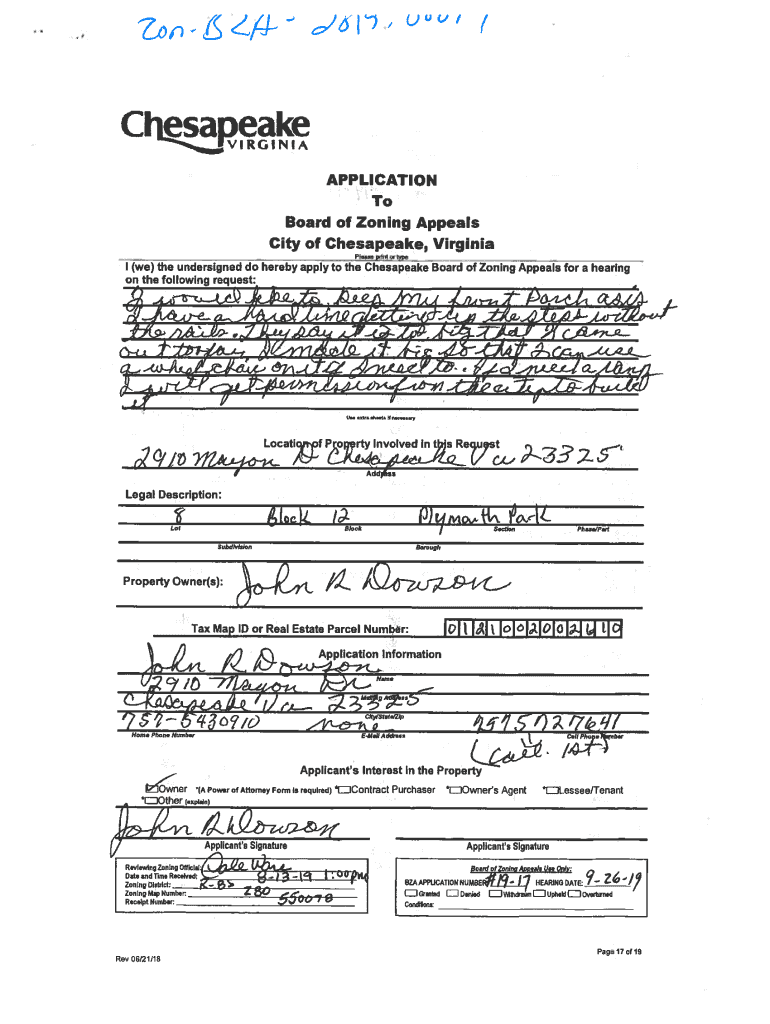 Zon-BZA-2019-00017
Chesapeake
VIRGINIA
APPLICATION
To
Board of Zoning Appeals
City of Chesapeake, Virginia
Please print or type
I (we) the undersigned do hereby apply to the Chesapeake Board of Zoning Appeals for a hearing
on the following request:
I would like to keep my front Porch as is
I have a hard time getting up the steps without
the rails. They say it is too big that I came
out to far, I made it big so that I can use
a wheel chair on it if I need to. If I need a ramp
I will get permission from the city to build
it
Use extra sheets if necessary
Location of Property Involved in this Request
2910 Mayon D Chesapeake Va 23325
Address
Legal Description:
8 Block 12 Plymouth Park
Lot Block Section Phase/Part
Subdivision Borough
Property Owner(s): John R Dowson
Tax Map ID or Real Estate Parcel Number: 0121002002610
Application Information
John R Dowson
Name
2910 Mayon Dr
Mailing Address
Chesapeake Va 23325
City/State/Zip
757-5430910 none 7575727641
Home Phone Number E-Mail Address Cell Phone Number
(Call. 1st)
Applicant's Interest in the Property
Owner *(A Power of Attorney Form is required) *Contract Purchaser *Owner's Agent *Lessee/Tenant
*Other (explain)
John R Dowson
Applicant's Signature Applicant's Signature
Reviewing Zoning Official: Dale Ware
Date and Time Received: 8-13-19 1:00pm
Zoning District: R-8S
Zoning Map Number: 280
Receipt Number: 550078
Board of Zoning Appeals Use Only:
BZA APPLICATION NUMBER #19-17 HEARING DATE: 9-26-19
Granted Denied Withdrawn Upheld Overturned
Conditions:
Page 17 of 19
Rev 06/21/18